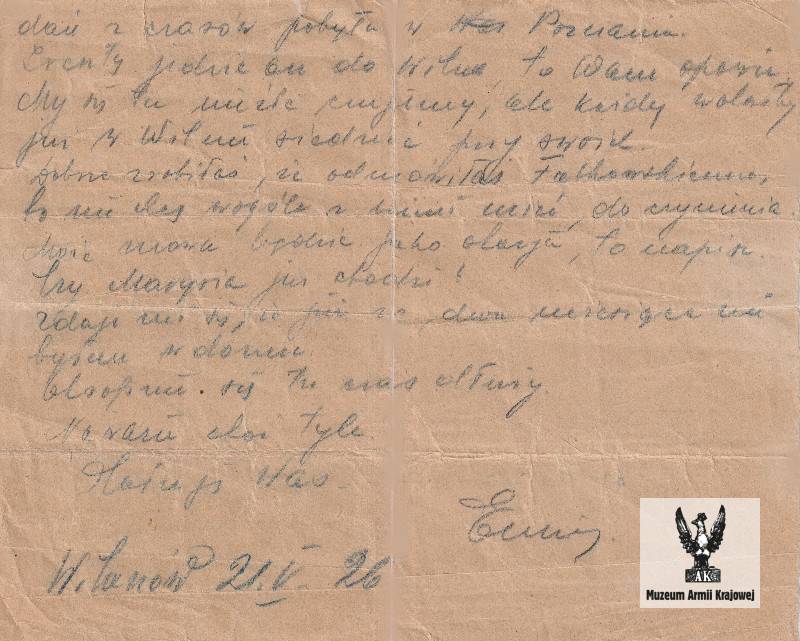 dań z czasów pobytu w Poznaniu.
jedzie on do Wilna, to Wam opowie.
My się tu nieźle czujemy, ale każdy wolałby
już w Wilnie siedzieć przy swoich.
Dobrze zrobiłaś, że odmówiłaś Falkowskiemu,
bo nie chcę wogóle z nimi mieć do czynienia.
Może znowu będzie jaka okazja, to napisz.
Czy Marysia już chodzi?
Zdaje mi się, że już ze dwa miesiące nie
byłem w domu.
się tu czas dłuży.
Na razie choć tyle.
Całuję Was.
Wilanów 21.V.26
AK
Muzeum Armii Krajowej